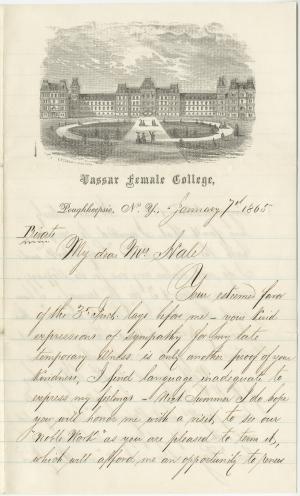 Vassar Female College,
Poughkeepsie, N. Y., January 7th 1865
Private
My dear Mrs Hale
Your esteemed favor
of the 3d Inst. lays before me – your kind
expressions of Sympathy for my late
temporary illness is only another proof of your
kindness, I find language inadequate to
express my feelings – Next Summer I do hope
you will honor me with a visit, to see our
"Noble Work" as you are pleased to term it,
which will afford me an opportunity to